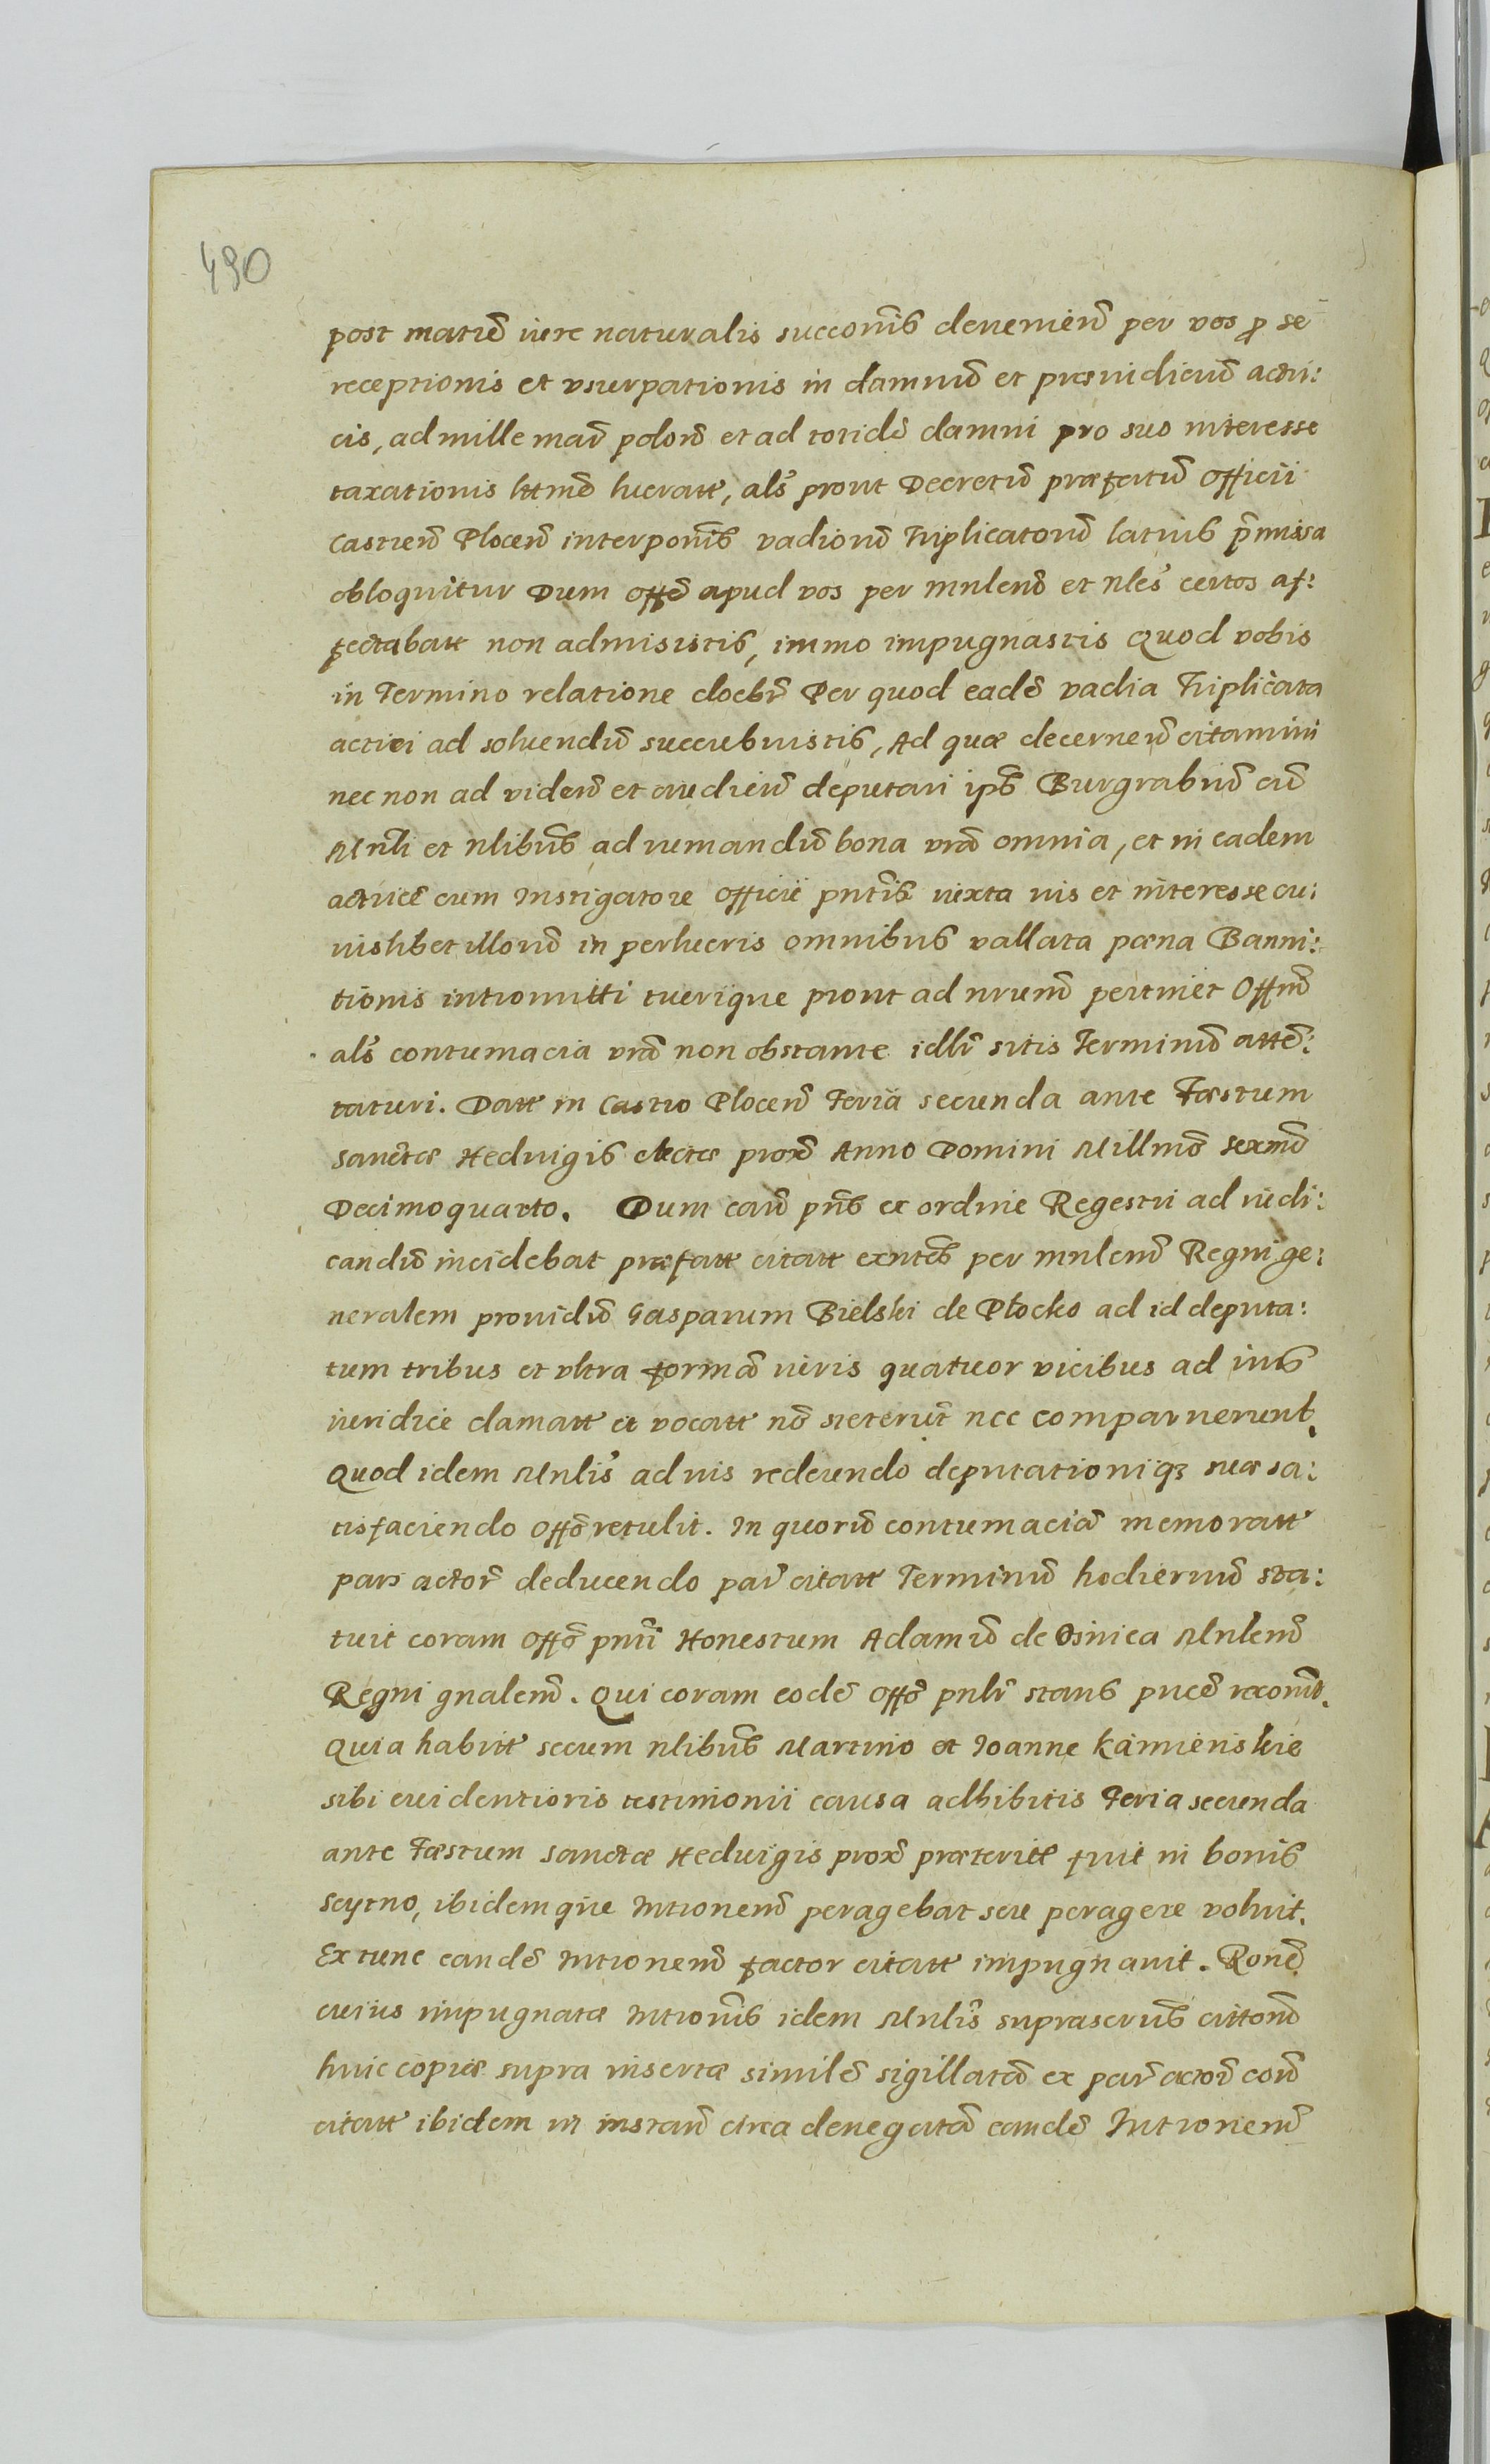 490
post matrē iure naturalis succon̄is deuenien̄ per vos p se
receptionis et vsurpationis in damnū et præiudiciū actri:
cis, ad mille mar̄ polon̄ et ad totidē damni pro suo interesse
taxationis littm̄e lucratt, als prout Decretū præfatū Officii
Castren̄ Plocen̄ interpon̄is vadiorū Triplicatorū latius p̄missa
obloquitur Dum offō apud vos per mnlem̄ et nles certos af:
fectabatt non admisistis, immo impugnastis Quod vobis
in Termino relatione docebr̄ Per quod eadē vadia Triplicata
actrici ad soluendū succubuistis, Ad quæ decernen̄ citamini
nec non ad viden̄ et audien̄ deputari ips̄ Burgrabiū cū
Mnli et nlibus̄ ad iumandū bona vrā omnia, et in eadem
actricē cum Instigatore Officii pn̄tis iuxta ius et interesse cu:
iuslibet illorū in perlucris omnibus vallata pœna Banni:
tionis intromitti tuerique prout ad nrum̄ pertinet Offm̄
als contumacia vrā non obstante idlr̄ sitis Terminū atten̄:
taturi. Datt in Castro Plocen̄ Feria secunda ante Fæstum
Sanctæ Heduigis electæ prox̄ Anno Domini Millmō Sexmō
Decimoquarto. Dum cau̅ pn̄s ex ordine Regestri ad iudi:
candū incidebat præfatt citatt exnt̄es per mnlem̄ Regni ge:
neralem prouidū Gasparum Bielski de Płocko ad id deputa:
tum tribus et vltra formā iuris quatuor vicibus ad ius
iuridice clamatt et vocatt nō steterūt nec comparuerunt,
Quod idem Mnlis ad ius redeundo deputationiq; suæ sa:
tisfaciendo Offō retulit. In quorū contumaciā memoratt
pars actor̄ deducendo par̄ citatt Terminū hodiernū sta:
tuit coram Offō pn̄ti Honestum Adamū de Osnica Mnlem̄
Regni gnalem̄. Qui coram eodē Offō pnlr̄ stans pucē recon̄t.
Quia habitt secum nlibus̄ Martino et Ioanne Kamienskie
sibi euidentioris testimonii causa adhibitis Feria secunda
ante Fæstum Sanctæ Heduigis prox̄ præteritt fuit in bonis
Scytno, ibidemque Intronem̄ peragebat seu peragere voluit.
Ex tunc eandē Intronem̄ factor citatt impugnauit. Ronē
cuius impugnatæ Intron̄is idem Mnlis suprascrus̄ cittonē
huic copiæ supra insertæ similē sigillatā ex par̄ actor̄ con̄
citatt ibidem in instan̄ circa denegatā eandē Intronem̄